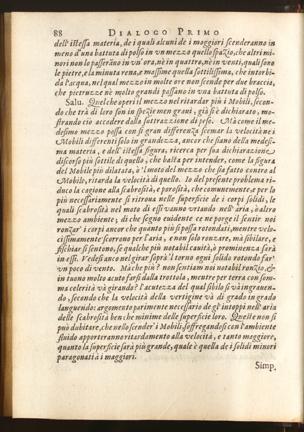 88 DIALOGO PRIMO
dell'istessa materia, de i quali alcuni de i maggiori scenderanno in
meno d'una battuta di polso in vn mezzo quello spazio, che altri mi-
nori non lo passeranno in vn'ora, nè in quattro, nè in venti, quali sono
le pietre, e la minuta rena, e massime quella sottilissima, che intorbi-
da l'acqua, nel qual mezzo in molte ore non scende per due braccia,
che pietruzze nè molto grandi passano in vna battuta di polso.
Salu. Quel che operi il mezzo nel ritardar più i Mobili, secon-
do che trà di loro son in spezie men graui, già s'è dichiarato, mo-
strando ciò accadere dalla suttrazzione di peso. Mà come il me-
desimo mezzo possa con sì gran differenza scemar la velocità ne i
Mobili differenti solo in grandezza, ancor che siano della medesi-
ma materia, e dell'istessa figura, ricerca per sua dichiarazione
discorso più sottile di quello, che basta per intender, come la figura
del Mobile più dilatata, ò 'l moto del mezzo che sia fatto contro al
Mobile, ritarda la velocità di quello. Io del presente problema ri-
duco la cagione alla scabrosità, e porosità, che comunemente e per lo
più necessariamente si ritroua nelle superficie de i corpi solidi, le
quali scabrosità nel moto di essi vanno vrtando nell'aria, ò altro
mezzo ambiente; di che segno euidente ce ne porge il sentir noi
ronzar' i corpi ancor che quanto più si possa rotondati, mentre velo-
cissimamente scorrono per l'aria, e non solo ronzare, mà sibilare, e
fischiar si sentono, se qualche più notabil cauità, ò prominenza sarà
in essi. Vedesi anco nel girar sopra'l torno ogni solido rotondo far'
vn poco di vento. Mà che più? non sentiam noi notabil ronzio, &
in tuono molto acuto farsi dalla trottola, mentre per terra con som-
ma celerità và girando? l'acutezza del qual sibilo si và ingrauen-
do, secondo che la velocità della vertigine và di grado in grado
languendo: argomento parimente necessario de gl'intoppi nell'aria
delle scabrosità ben che minime delle superficie loro. Queste non si
può dubitare, che nello scender' i Mobili, soffregandosi con l'ambiente
fluido apporteranno ritardamento alla velocità, e tanto maggiore,
quanto la superficie sarà più grande, quale è quella de i solidi minori
paragonati à i maggiori.
Simp.